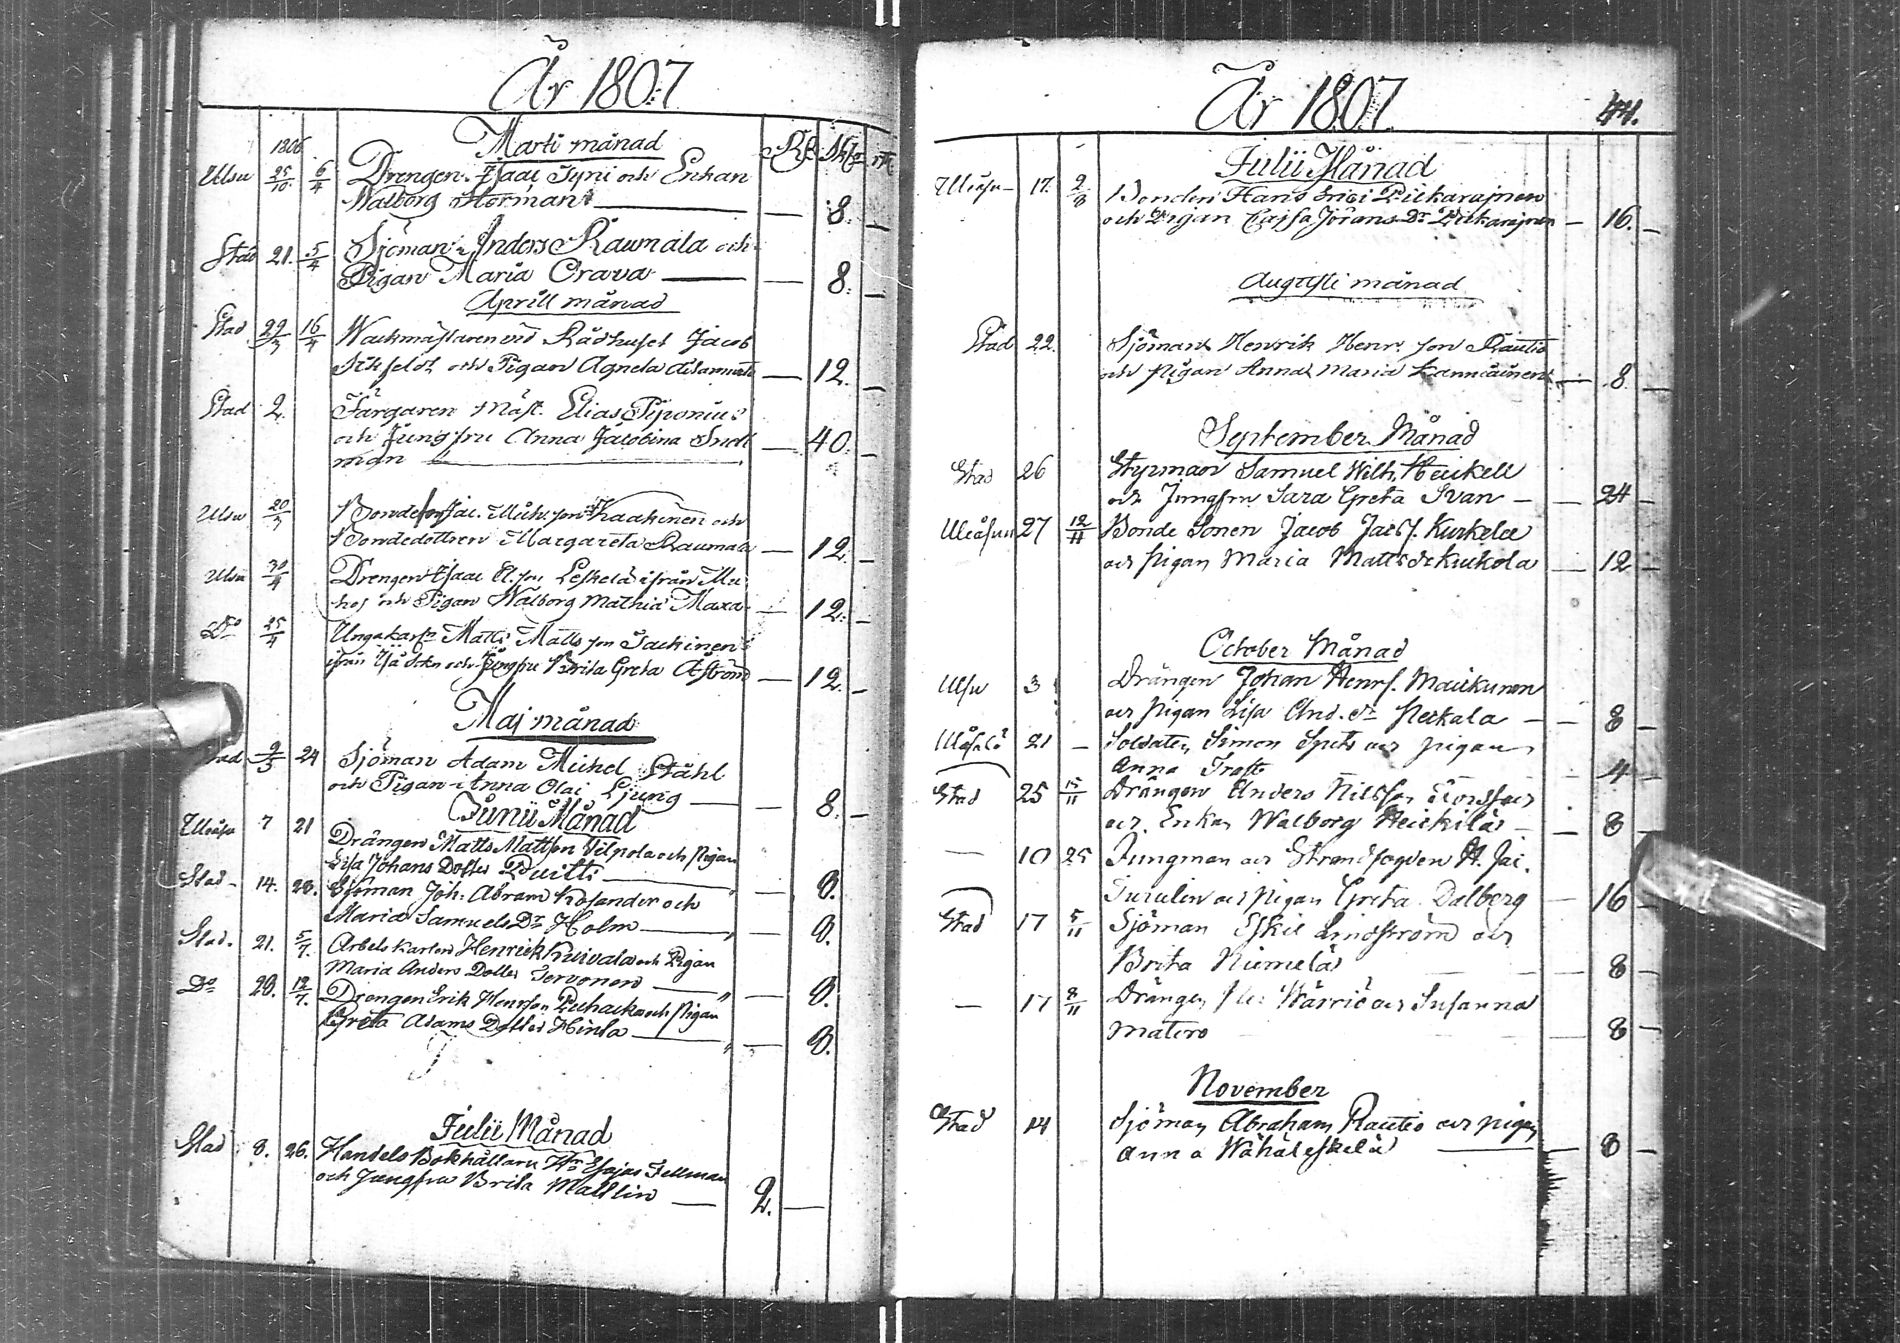 År 1807
Marti månad
Rd Sk rst
1806
Ulsu 25/10 6/4 Drengen Isaac Tyni och Enkan
Walborg Storman — 8. —
Stad 21. 5/4 Sjöman Anders Raumala och
Pigan Maria Orava — 8. —
Aprill månad
Stad 29/3 16/4 Wacktmästaren vid Rådhuset Jacob
och Pigan Agneta — 12. —
Stad 2. Färgaren Mäst. Elias Piponius
och Jungfru Anna Jacobina Snell
man — 40. —
Ulsu 20/3 Bondeson Jac. Mich. son Kaakinen och
Bondedottren Margareta Raumala — 12. —
Ulsu 30/4 Drengen Isaac El. son Leskelä ifrån Mu
hos och Pigan Walborg Mathia Maxa — 12. —
Do 25/4 Ungakarln Matts Matts son Jackinen
ifrån Ijå Sokn och Jungfru Brita Greta Åström — 12. —
Maj månad
Stad 9/5 24 Sjöman Adam Michel Ståhl
och Pigan Anna Olai Ljung — 8. —
Junii Månad
Uleåsu 7 21 Drängen Matts Mattson Tilpola och pigan
Lisa Johans Dotter Puitti — 8.
Stad 14. 28. Sjöman Joh. Abram Rosander och
Maria Samuels Dr Holm — 8.
Stad. 21. 5/7. Arbets karlen Henrick Kuivala och Pigan
Maria Anders Dotter Servonen — 8.
Do 28. 12/7. Drengen Erik Henrsson Puhacka och pigan
Greta Adams Dotter Hinta — 8.
Julii Månad
Stad 8. 26. Handels Bokhållaren Hr Esajas Fellman
och Jungfru Brita Mathlin — 2. —
År 1807.
44.
Julii Månad
Uleåsu 17. 2/8 Bonden Hans Erici Pickarajnen
och Pigan Cajsa Jörans Dr Pickarajnen — 16. —
Augusti månad
Stad 22. Sjöman Henrik Henr. son Rautio
och pigan Anna Maria — 8 —
September Månad
Stad 26 Styrman Samuel Wilh. Heickell
och Jungfru Sara Greta Svan — 24 —
Uleåsun 27 12/11 Bonde Sonen Jacob Jacs. Kurkela
och pigan Maria Matts dr Kuckola — 12 —
October Månad
Ulsu 3 Drängen Johan Henrs. Maickunen
och pigan Lisa And. dr Heckala — 8 —
21 — Soldaten Simon Spets och pigan
Anna Trast — 4 —
Stad 25 15/11 Drängen Anders Nilsson
och Enkan Walborg Heickilä — 8 —
— 10 25 Jungman och Strandfogden H. Jac.
Turulin och pigan Greta Dalberg — 16 —
Stad 17 5/11 Sjöman Eskil Lindström och
Brita Niemelä — 8 —
— 17 8/11 Drängen Wärriö och Susanna
Matero — 8 —
November
Stad 14 Sjöman Abraham Rautio och pigan
Anna Wähäleskelä — 8 —